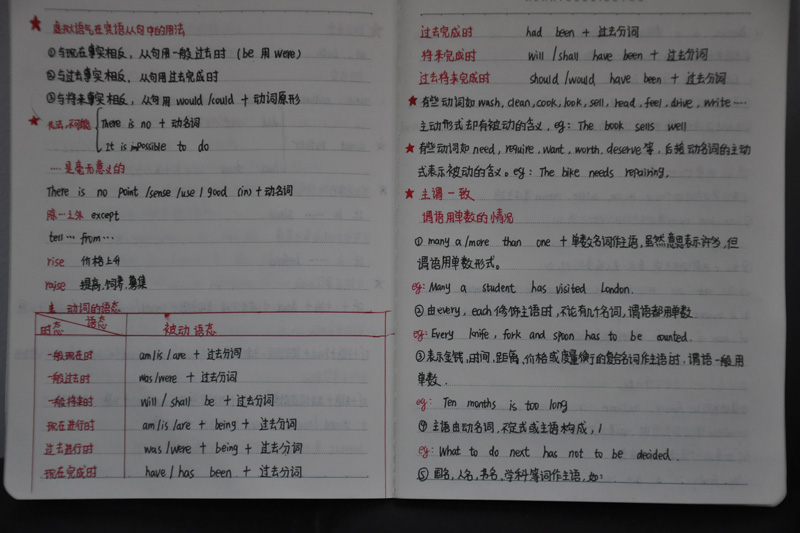 ★ 虚拟语气在宾语从句中的用法
①与现在事实相反，从句用一般过去时（be 用 were）
②与过去事实相反，从句用过去完成时
③与将来事实相反，从句用 would /could + 动词原形
★ 无法，不可能 { There is no + 动名词
It is impossible to do
.... 是毫无意义的
There is no point /sense /use / good (in) + 动名词
除…之外 except
tell … from …
rise 价格上升
raise 提高，饲养，募集
动词的语态
时态 语态 被动语态
一般现在时 am/is/are + 过去分词
一般过去时 was/were + 过去分词
一般将来时 will / shall be + 过去分词
现在进行时 am/is/are + being + 过去分词
过去进行时 was/were + being + 过去分词
现在完成时 have / has been + 过去分词
过去完成时 had been + 过去分词
将来完成时 will /shall have been + 过去分词
过去将来完成时 should /would have been + 过去分词
★ 有些动词如 wash, clean, cook, look, sell, read, feel, drive, write ....
主动形式却有被动的含义，eg: The book sells well
★ 有些动词如 need, require, want, worth, deserve 等，后接动名词的主动
式表示被动的含义。eg: The bike needs repairing.
★ 主谓一致
谓语用单数的情况
① many a /more than one + 单数名词作主语，虽然意思表示许多，但
谓语用单数形式。
eg: Many a student has visited London.
② 由every, each修饰主语时，不论有几个名词，谓语都用单数
eg: Every knife, fork and spoon has to be counted.
③ 表示金钱，时间，距离，价格或度量衡的复合名词作主语时，谓语一般用
单数.
eg: Ten months is too long
④ 主语由动名词，不定式或主语构成，/
eg: What to do next has not to be decided.
⑤ 国名，人名，书名，学科等词作主语，如: